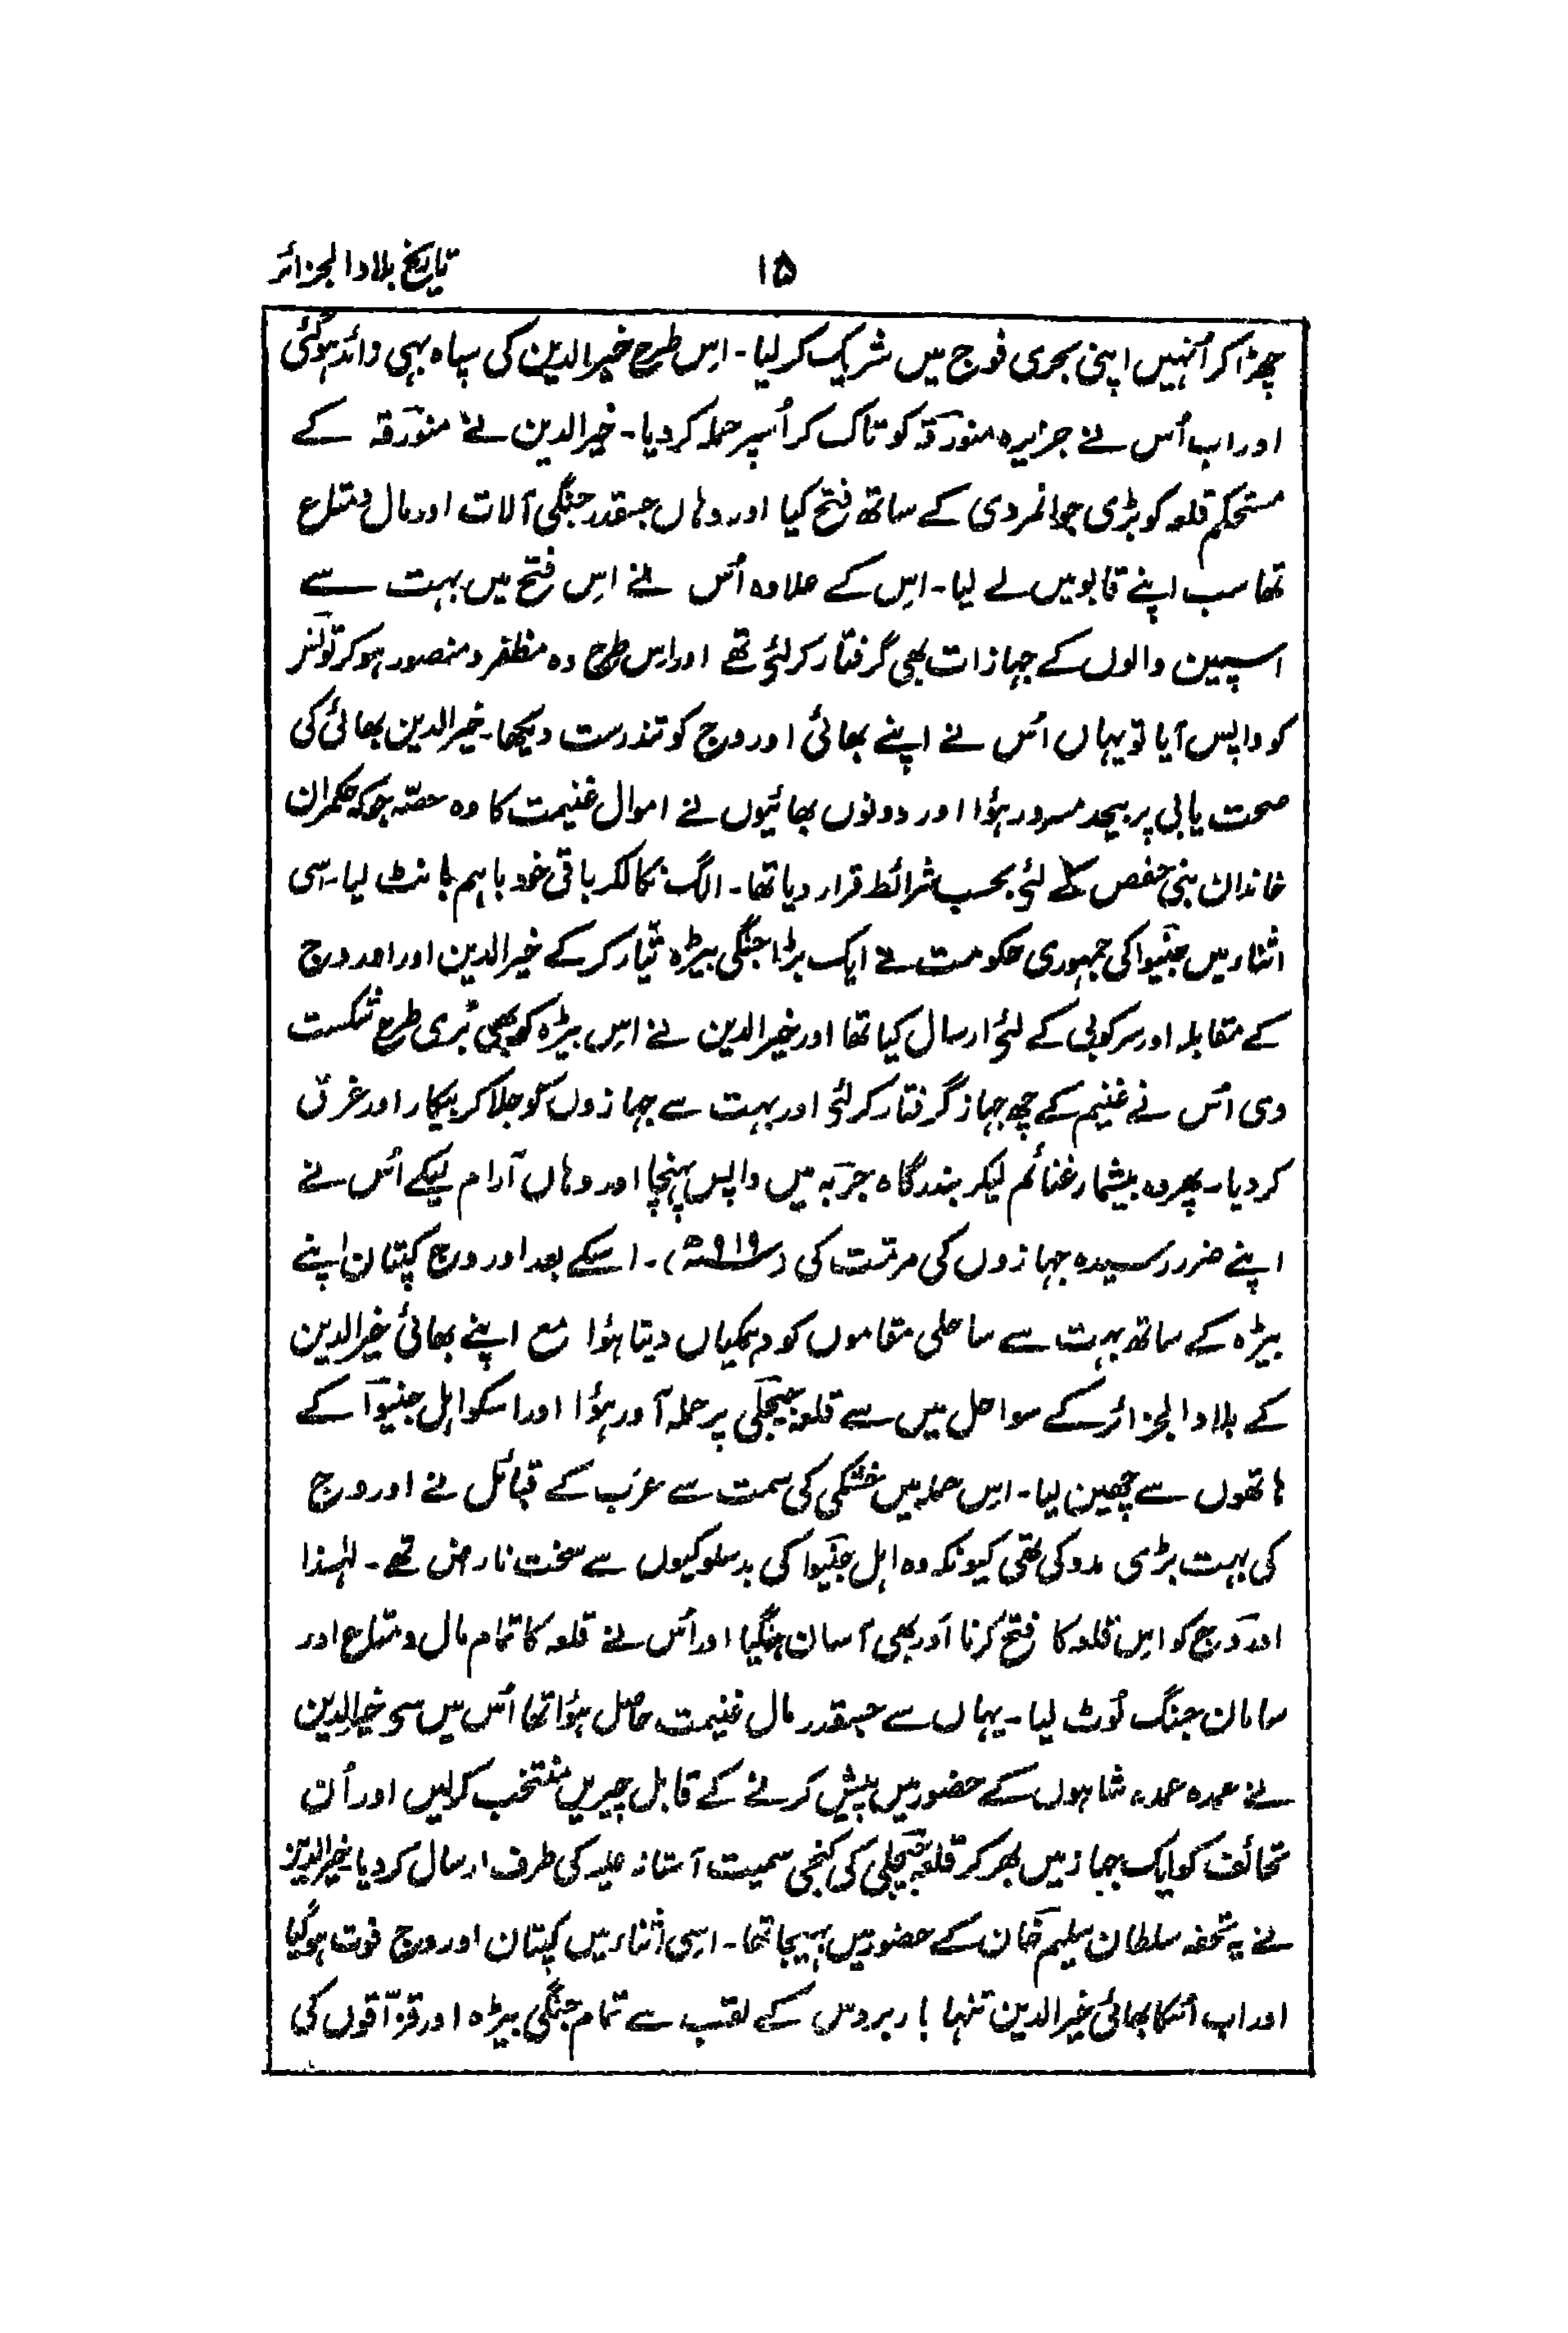 تاریخ بلاد الجزائر
۱۵
چھڑا کر اُنہیں اپنی بحری فوج میں شریک کر لیا۔ اِس طرح خیر الدین کی سپاہ بہی وائد ہوگئی
اور اب اُس نے جزیرہ منورقہ کو تاک کر اُسپر حملہ کر دیا۔ خیر الدین نے منورقہ کے
مستحکم قلعہ کو بڑی جوانمردی کے ساتھ فتح کیا اور وہاں جسقدر جنگی آلات اور مال و متاع
تھا سب اپنے قابو میں لے لیا۔ اِس کے علاوہ اُس نے اِس فتح میں بہت سے
اسپین والوں کے جہازات بھی گرفتار کر لئے تھے اور اِس طرح وہ مظفر و منصور ہو کر تولنز
کو واپس آیا تو یہاں اُس نے اپنے بھائی اوروج کو تندرست دیکھا۔ خیر الدین بھائی کی
صحت یابی پر بیحد مسرور ہؤا اور دونوں بھائیوں نے اموال غنیمت کا وہ حصّہ جو کہ حکمران
خاندان بنی حفص کے لئے بحسب شرائط قرار دیا تھا۔ الگ نکالکر باقی خود باہم بانٹ لیا۔ اسی
اثناء میں جنیوا کی جمہوری حکومت نے ایک بڑا جنگی بیڑہ تیّار کر کے خیر الدین اور اوروج
کے مقابلہ اور سرکوبی کے لئے ارسال کیا تھا اور خیر الدین نے اِس بیڑہ کو بھی بُری طرح شکست
دی اُس نے غنیم کے چھ جہاز گرفتار کر لئے اور بہت سے جہازوں کو جلا کر بیکار اور غرق
کر دیا۔ پھر وہ بیشمار غنائم لیکر بندرگاہ جربہ میں واپس پہنچا اور وہاں آرام لیکے اُس نے
اپنے ضرر رسیدہ جہازوں کی مرمّت کی (سنہ ۹۱۹ھ)۔ اسکے بعد اوروج کپتان اپنے
بیڑہ کے ساتھ بہت سے ساحلی مقاموں کو دہمکیاں دیتا ہؤا مع اپنے بھائی خیر الدین
کے بلاد الجزائر کے سواحل میں سے قلعہ جیجلی پر حملہ آور ہؤا اور اسکو اہل جنیوا کے
ہاتھوں سے چھین لیا۔ اِس حملہ میں خشکی کی سمت سے عرب کے قبائل نے اوروج
کی بہت بڑی مدد کی تھی کیونکہ وہ اہل جنیوا کی بدسلوکیوں سے سخت ناراض تھے۔ لہٰذا
اوروج کو اِس قلعہ کا فتح کرنا اَور بھی آسان ہوگیا اور اُس نے قلعہ کا تمام مال و متاع اور
سامان جنگ لُوٹ لیا۔ یہاں سے جسقدر مال غنیمت حاصل ہؤا تھا اُس میں سے خیر الدین
نے عمدہ عمدہ شاہوں کے حضور میں پیش کرنے کے قابل چیزیں منتخب کر لیں اور اُن
تحائف کو ایک جہاز میں بھر کر قلعہ جیجلی کی کنجی سمیت آستانہ علیہ کی طرف ارسال کر دیا خیر الدین
نے یہ تحفہ سلطان سلیم خان کے حضور میں بہیجا تھا۔ اسی اثناء میں کپتان اوروج فوت ہوگیا
اور اب اُسکا بھائی خیر الدین تنہا باربروس کے لقب سے تمام جنگی بیڑہ اور قزّاقوں کی